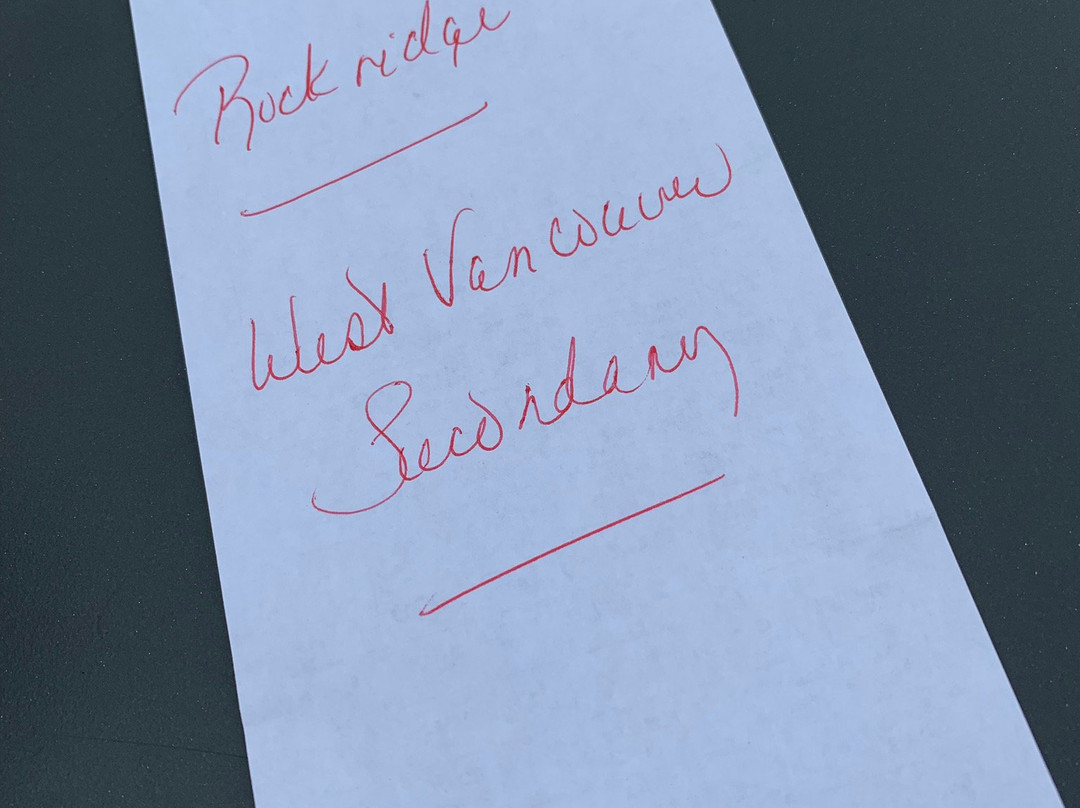 Rockridge
West Vancouver
Secondary